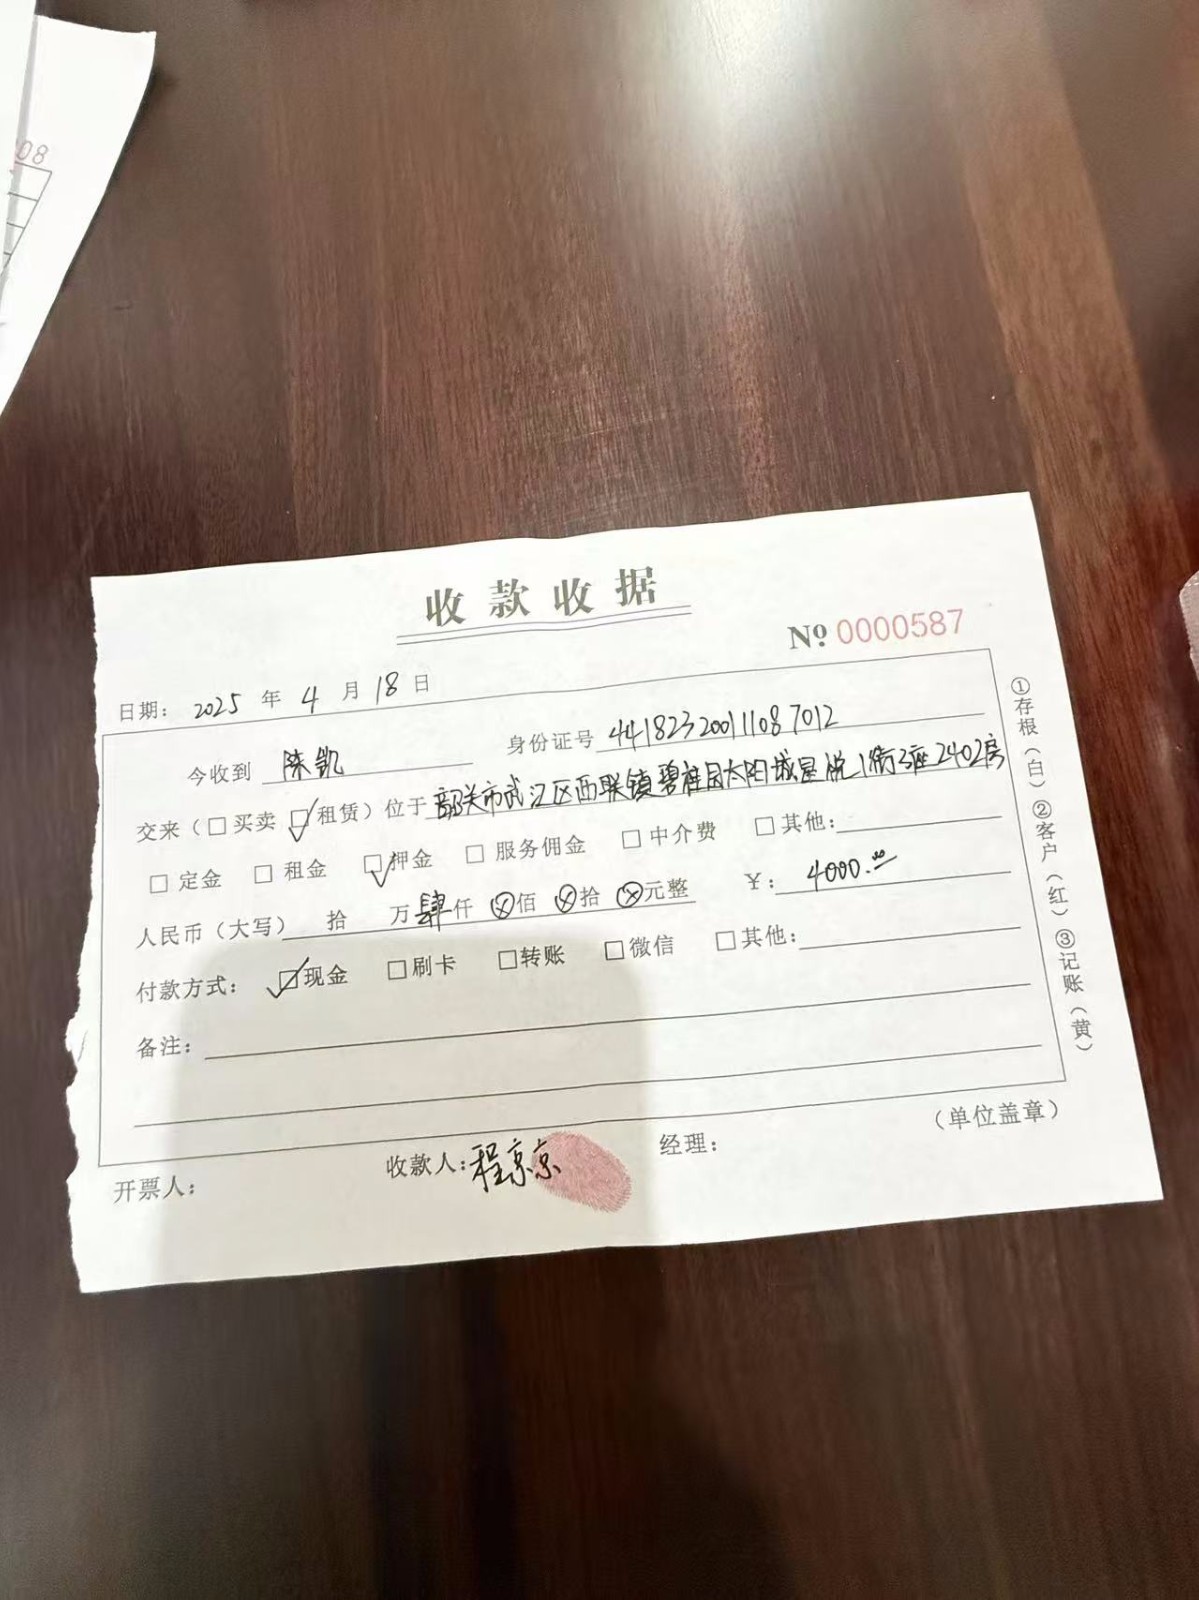 08
收款收据
№ 0000587
日期: 2025 年 4 月 18 日
今收到 陈凯 身份证号 441823200111087012
交来(□买卖 ☑租赁)位于 韶关市武江区西联镇碧桂园太阳城星悦1街3座2402房
□ 定金 □ 租金 ☑ 押金 □ 服务佣金 □ 中介费 □ 其他:
人民币(大写) 拾 万 肆仟 ⊗佰 ⊗拾 ⊗元整 ¥: 4000.00
付款方式: ☑现金 □刷卡 □转账 □微信 □其他:
备注:
(单位盖章)
开票人: 收款人: 程京京 经理:
①存根(白)②客户(红)③记账(黄)